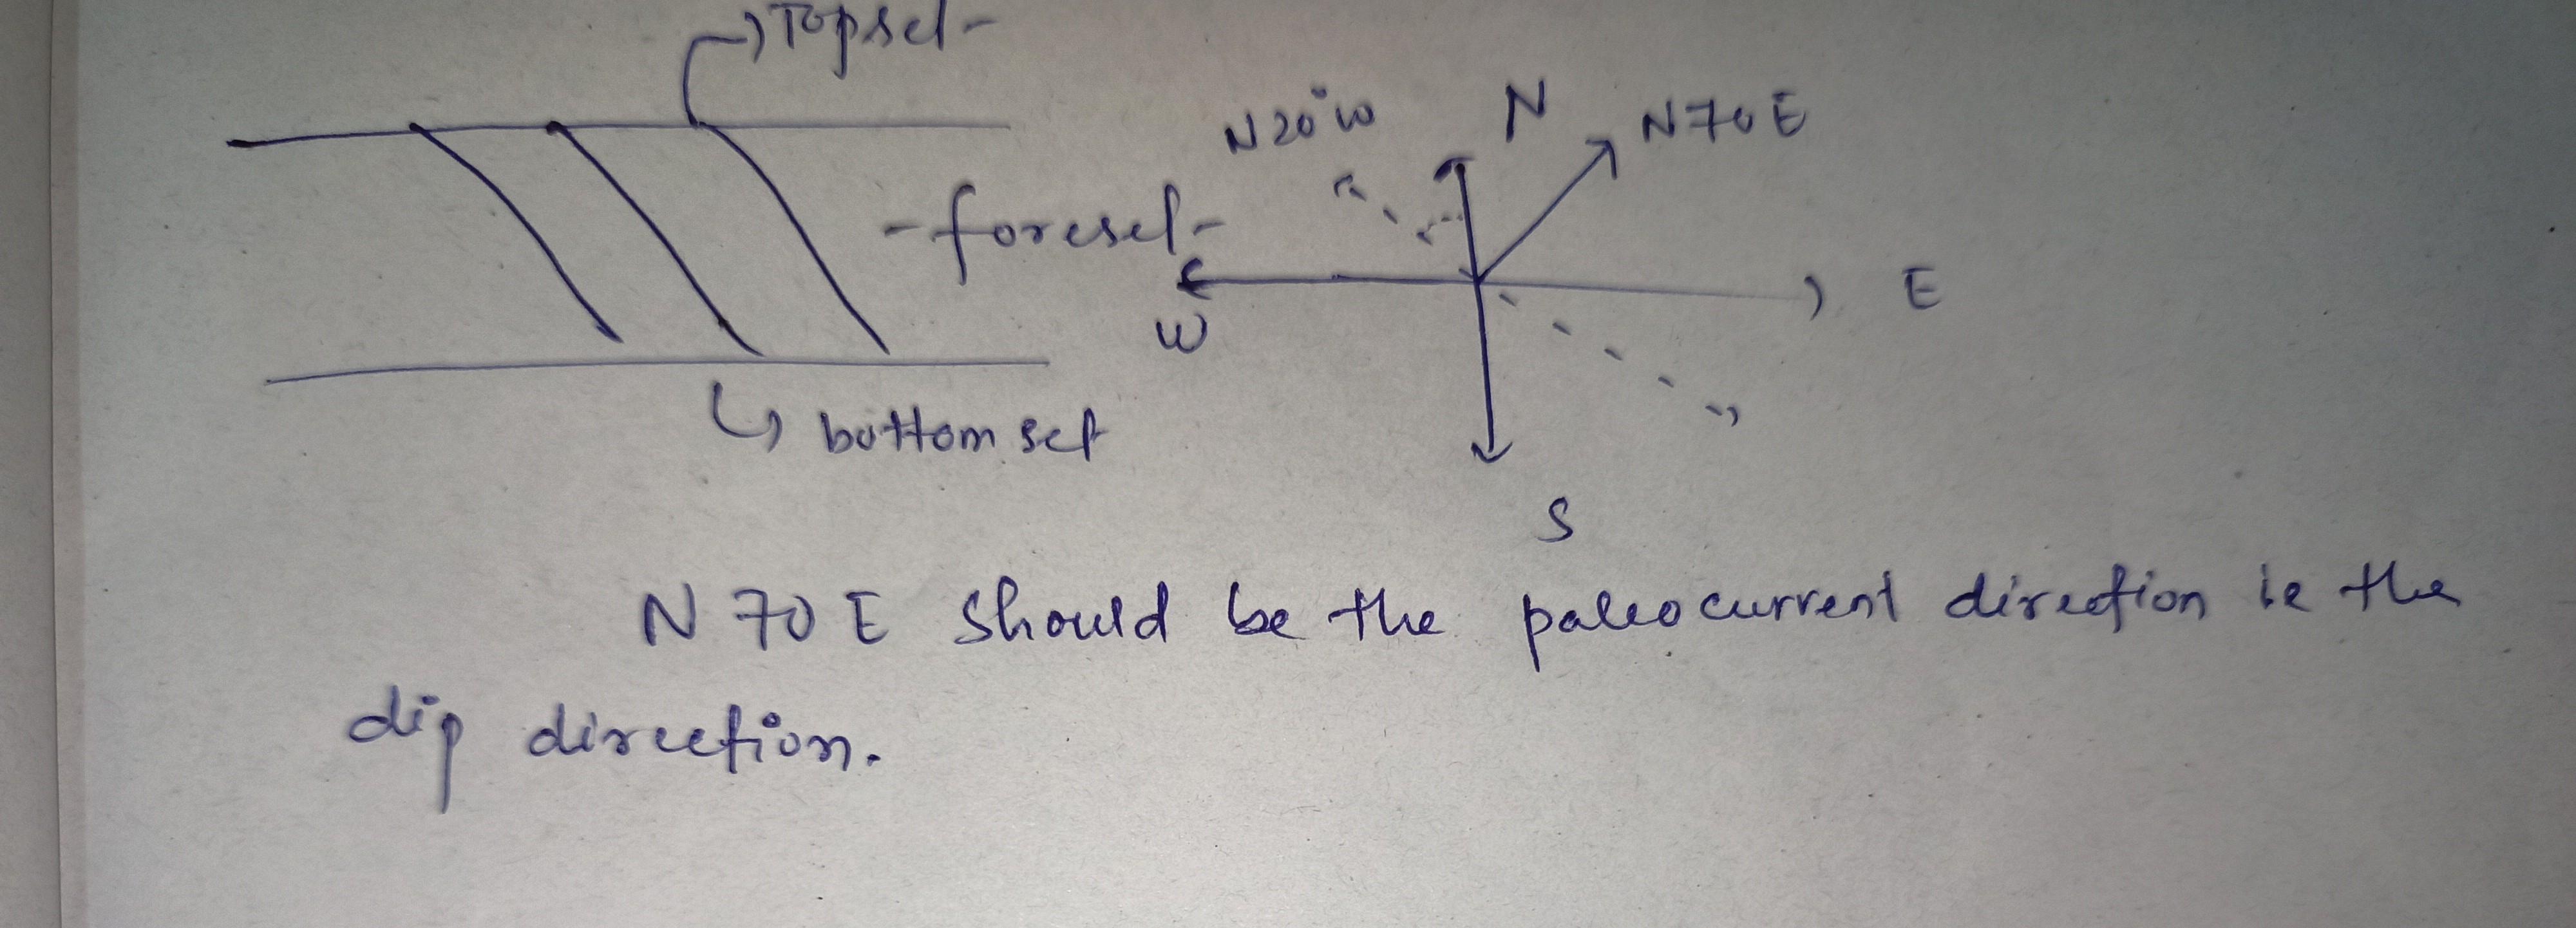 Topset
N20°W
N
N70E
foreset
W
E
bottom set
S
N 70 E should be the paleocurrent direction ie the
dip direction.